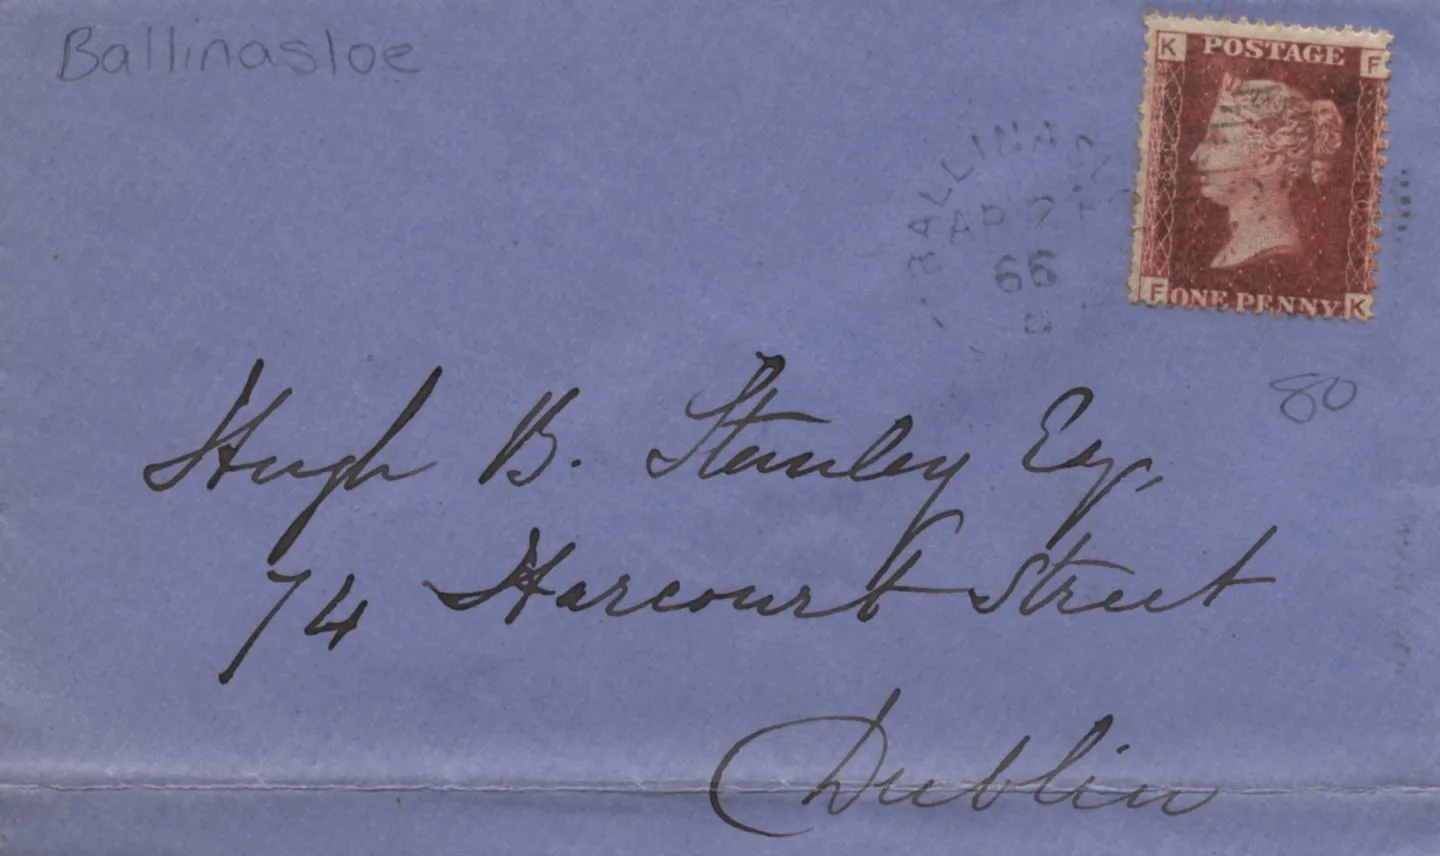 Ballinasloe
K POSTAGE F
F ONE PENNY K
BALLINAS
AP 7
66
80
Hugh B. Stanley Esq,
74 Harcourt Street
Dublin